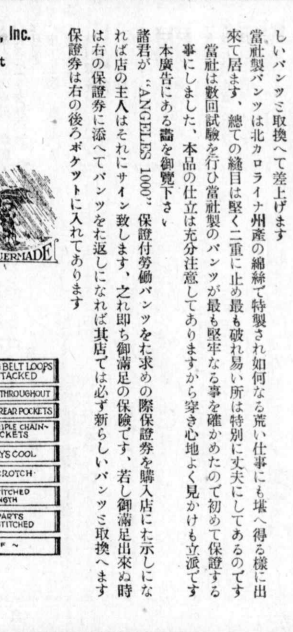 しいパンツミ取換へて差上げます
當社製パンツは北カロライナ州產の綿絲で特製され如何なる荒い仕事にも堪へ得る樣に出
來て居ます、總ての縫目は堅く二重に止め最も破れ易い所は特別に丈夫にしてあるのです
當社は數回試驗を行ひ當社製のパンツが最も堅牢なる事を確かめたので初めて保證する
事にしました、本品の仕立は充分注意してありますから穿き心地よく見かけも立派です
本廣告にある畵を御覽下さい
諸君が "ANGELES 1000" 保證付勞働パンツをた求めの際保證券を購入店にた示しにな
れば店の主人はそれにサイン致します、之れ即ち御滿足の保險です、若し御滿足出來ぬ時
は右の保證券に添へてパンツをた返しになれば其店では必ず新らしいパンツミ取換へます
保證券は右の後ろポケツトに入れてあります
, Inc.
t
UERMADE
BELT LOOPS
TACKED
THROUGHOUT
REAR POCKETS
IPLE CHAIN-
CKETS
YS COOL
CROTCH
TITCHED
NGTH
PARTS
STITCHED